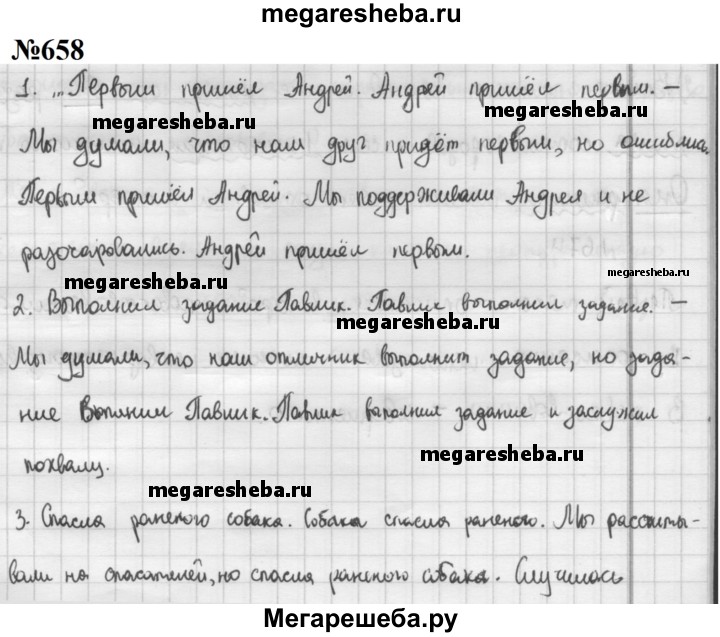 megaresheba.ru
№658
1. ...Первым пришёл Андрей. Андрей пришёл первым. –
megaresheba.ru
Мы думали, что наш друг придёт первым, но ошиблись.
Первым пришёл Андрей. Мы поддерживали Андрея и не
разочаровались. Андрей пришёл первым.
megaresheba.ru
megaresheba.ru
2. Выполнил задание Павлик. Павлик выполнил задание. –
megaresheba.ru
Мы думали, что наш отличник выполнит задание, но зада-
ние Выполнил Павлик. Павлик выполнил задание и заслужил
megaresheba.ru
похвалу.
megaresheba.ru
3. Спасла раненого собака. Собака спасла раненого. Мы рассчиты-
вали на спасателей, но спасла раненого собака. Случилось
Мегарешеба.ру